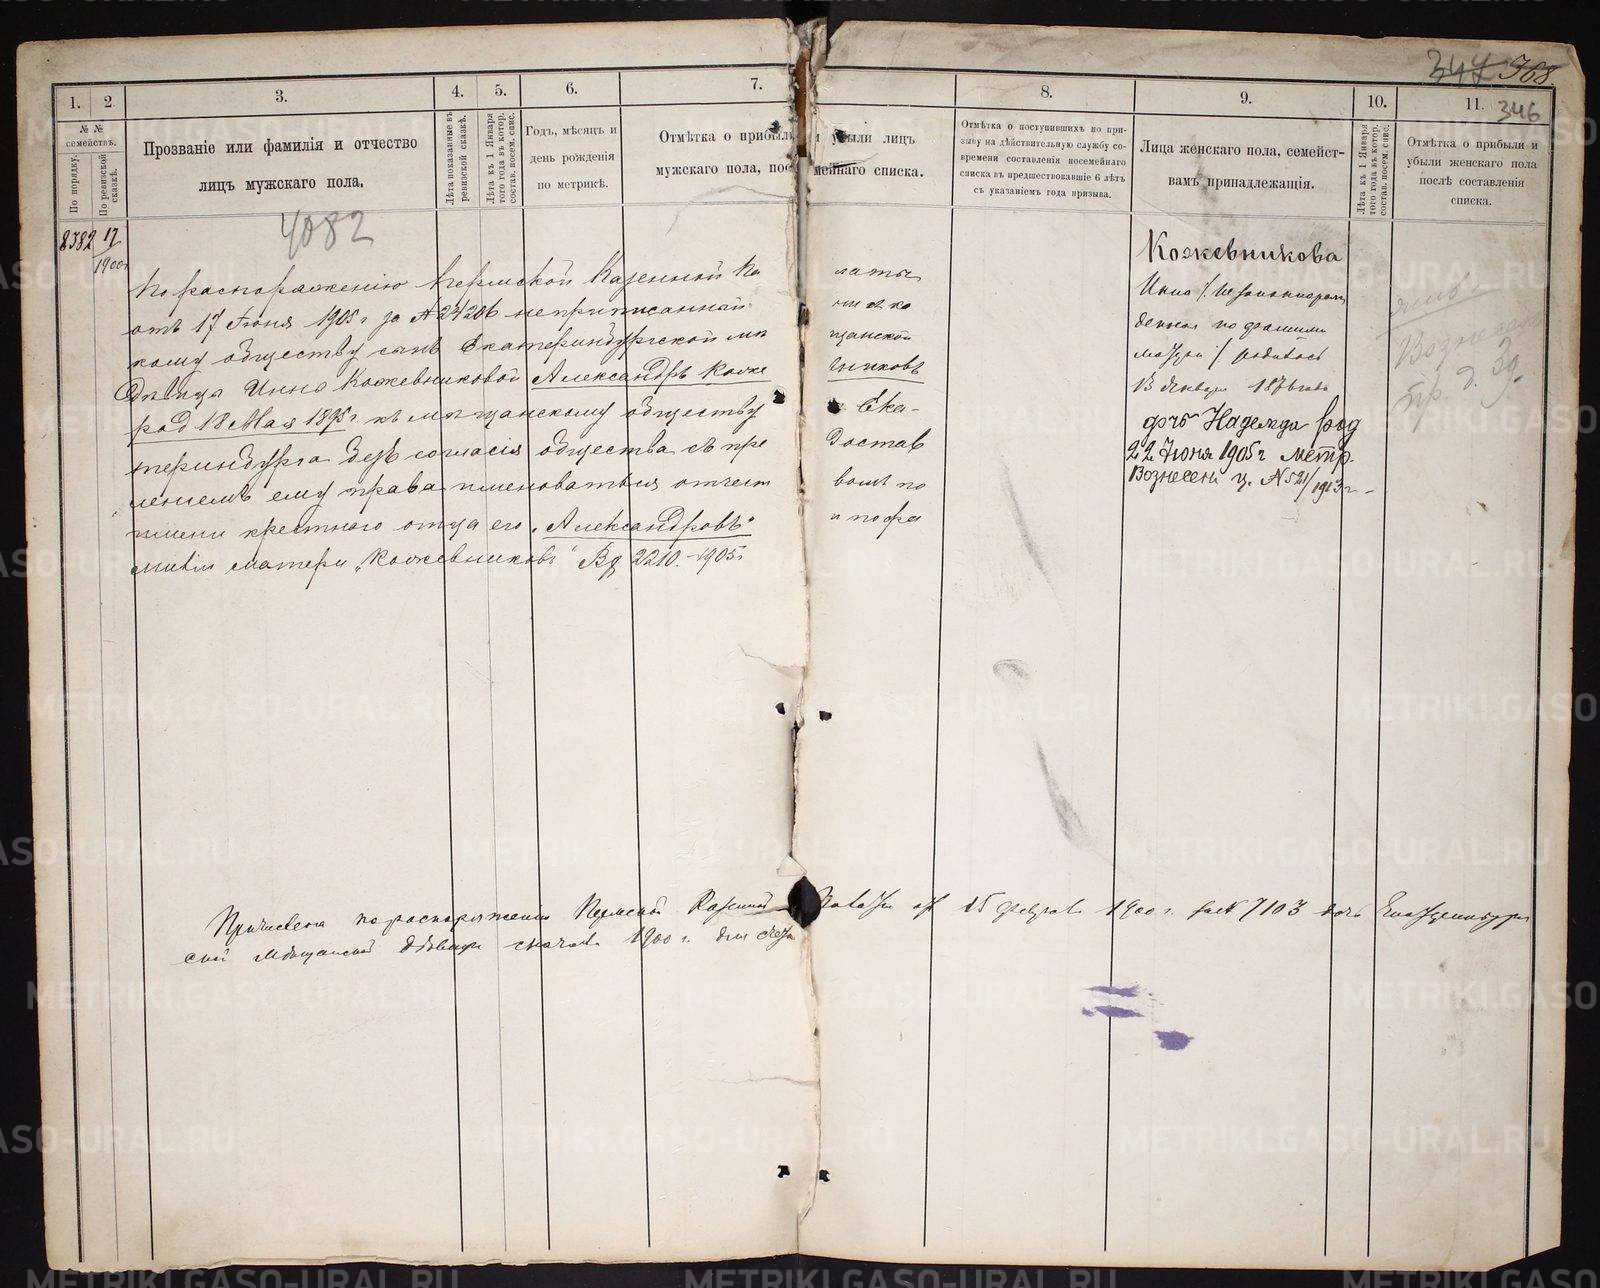 347 368.
346
1.
2
3.
4.
5.
6.
7.
8.
9.
10.
11.
№ №
семействъ.
По порядку.
По ревизской
сказкѣ.
Прозваніе или фамилія и отчество
лицъ мужскаго пола.
Лѣта показанные въ
ревизской сказкѣ.
Лѣта къ 1 Января
того года въ котор.
состав. посем. спис.
Годъ, мѣсяцъ и
день рожденія
по метрикѣ.
Отмѣтка о прибыли и убыли лицъ
мужскаго пола, посемейнаго списка.
Отмѣтка о поступившихъ по при-
зыву на дѣйствительную службу со-
времени составленія посемейнаго
списка въ предшествовавшіе 6 лѣтъ
съ указаніемъ года призыва.
Лица женскаго пола, семейст-
вамъ принадлежащія.
Лѣта къ 1 Января
того года въ котор.
состав. посем. спис.
Отмѣтка о прибыли и
убыли женскаго пола
послѣ составленія
списка.
8582 17
1900г
4082
По распоряженію Пермской Казенной Палаты
отъ 17 Іюня 1905 г за № 24206 неприписанный ни къ ка
кому обществу сынъ Екатеринбургской мѣщанской
дѣвицы Инны Кожевниковой Александръ Кожевниковъ
род 18 Мая 1895 г къ мѣщанскому обществу г. Ека-
теринбурга безъ согласія общества съ предостав
леніемъ ему права именоваться отчествомъ по
имени крестнаго отца его „Александровъ" и по фа
миліи матери „Кожевниковъ" Вд 2210.-1905 г
Кожевникова
Инна / незаконнорож
денная по фамиліи
матери / родилась
13 Января 1876 года
дочь Надежда род
22 Іюня 1905 г метр.
Вознесен ц. № 521/1913 г-
Причислена по распоряженію Пермской Казенной Палаты отъ 15 февраля 1900 г. за № 7103 дочь Екатеринбург
ской мѣщанской дѣвицы сначала 1900 г. для счета
METRIKI.GASO-URAL.RU